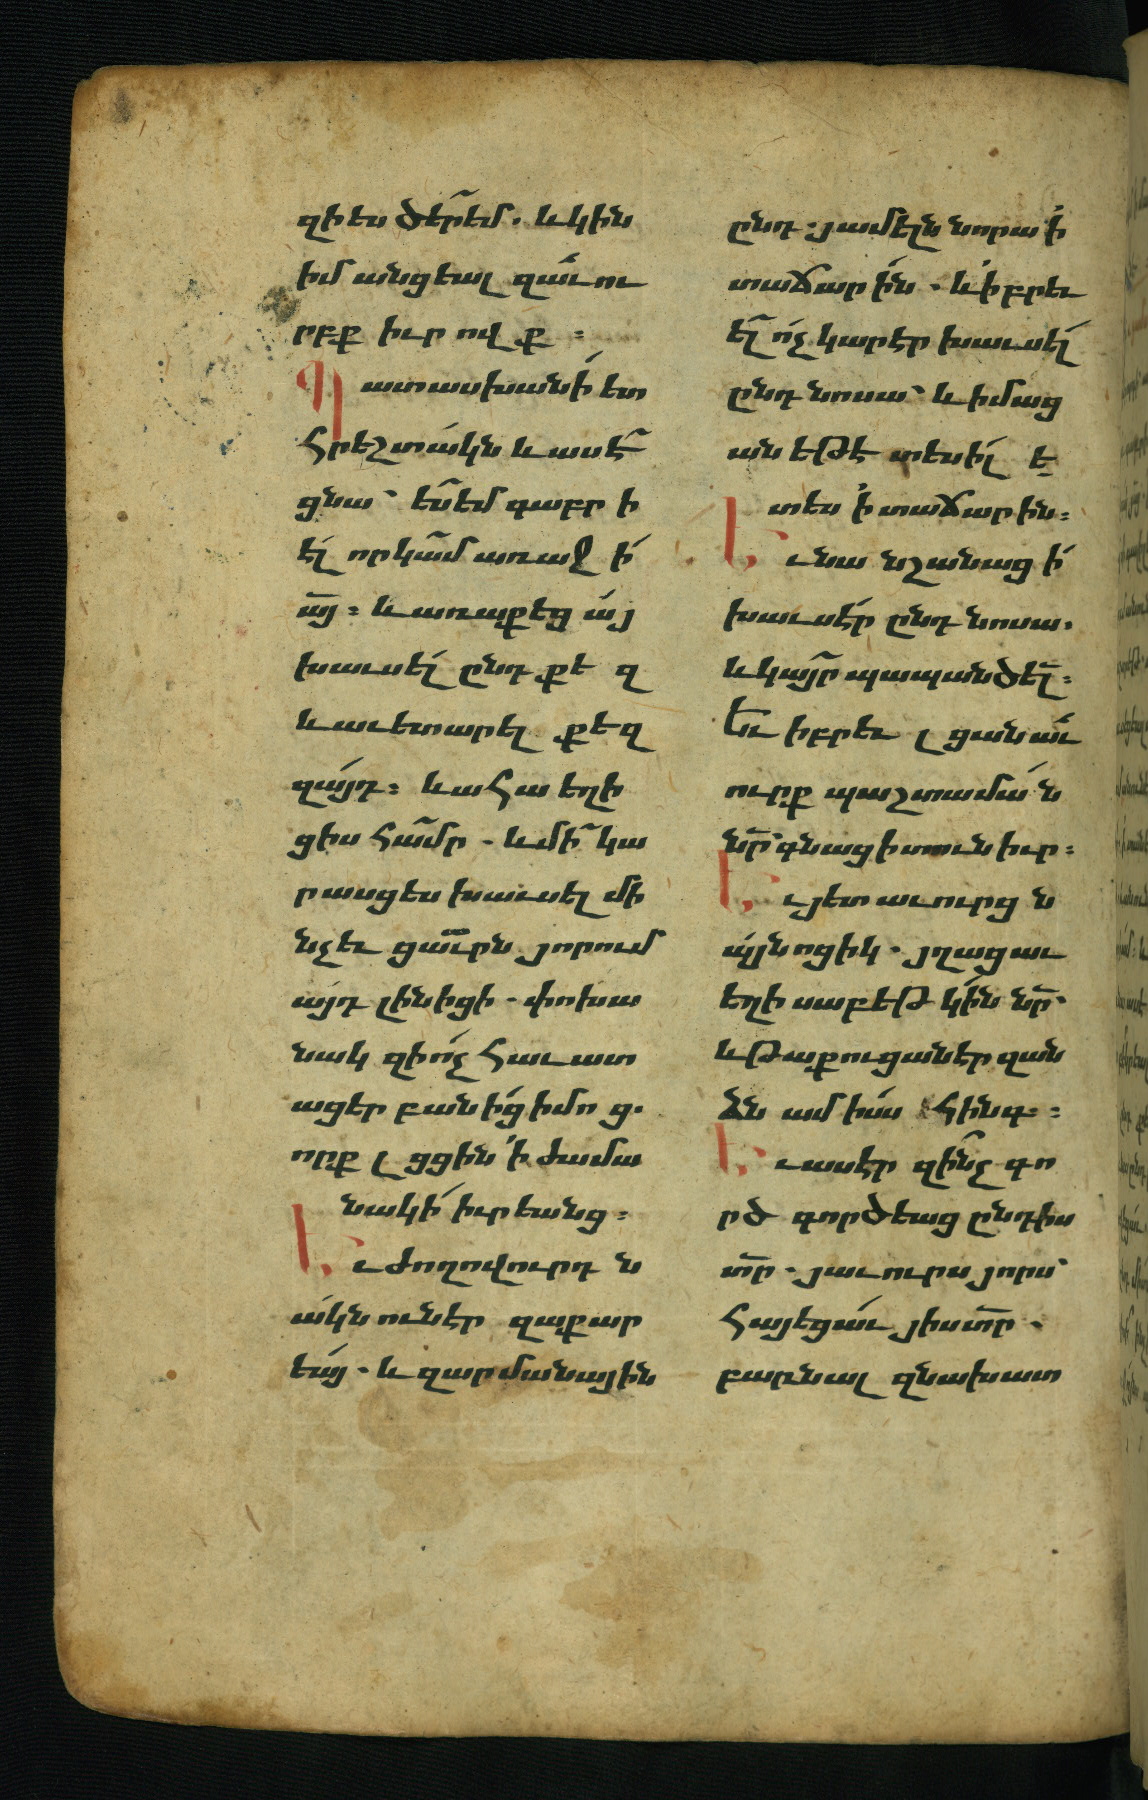 զի ես ծե̃ր եմ. և կին
իմ անցեալ զա՛ւու
րբք իւրովք ։
Պատասխանի՛ ետ
հրեշտա՛կն և ասէ̃
ցնա՝ ե̃ս եմ գաբրի
է՛լ որ կա̃մ առաջի՛
ա̃յ ։ և առաքեցա՛յ
խաւսե՛լ ընդ քեզ
և աւետարել քեզ
զա՛յդ ։ և ահա եղի
ցիս հա̃մր . և մի̃ կա
րասցես խաւսել մի
նչեւ ցա̃ւրն յորում
այդ լինիցի . փոխա
նակ զի ո՛չ հաւատ
ացեր բանի՛ց իմոց.
որք լցցին ՚ի ժամա
նակի՛ իւրեանց ։
Եւ ժողովուրդն
ա՛կն ունէր զաքար
եա՛յ . և զարմանային
ընդ յամել նորա ՚ի
տաճարին . և ՚իբրեւ
ե̃լ ո՛չ կարէր խաւսե՛լ
ընդ նոսա՝ և իմաց
ան եթէ տեսիլ ե
տես ՚ի տաճարին ։
Եւ նա նշանացի՛
խաւսէ՛ր ընդ նոսա.
և կա̃յր պապանծե̃լ ։
Եւ իբրեւ լցան ա՛ւ
ուրք պաշտամա՛ն
ն̃ր՝ գնաց ի տուն իւր ։
Եւ յետ աւուրցն
ա՛յնոցիկ . յղացաւ
եղիսաբեթ կի՛ն ն̃ր.
և թաքուցանէր զան
ձն ամի՛ս հինգ ։
Եւ ասէր զի՛նչ գո
րծ գործեաց ընդ իս
տ̃ր . յաւուրս յորս՝
հայեցա՛ւ յիս տ̃ր .
բառնալ զնախատ